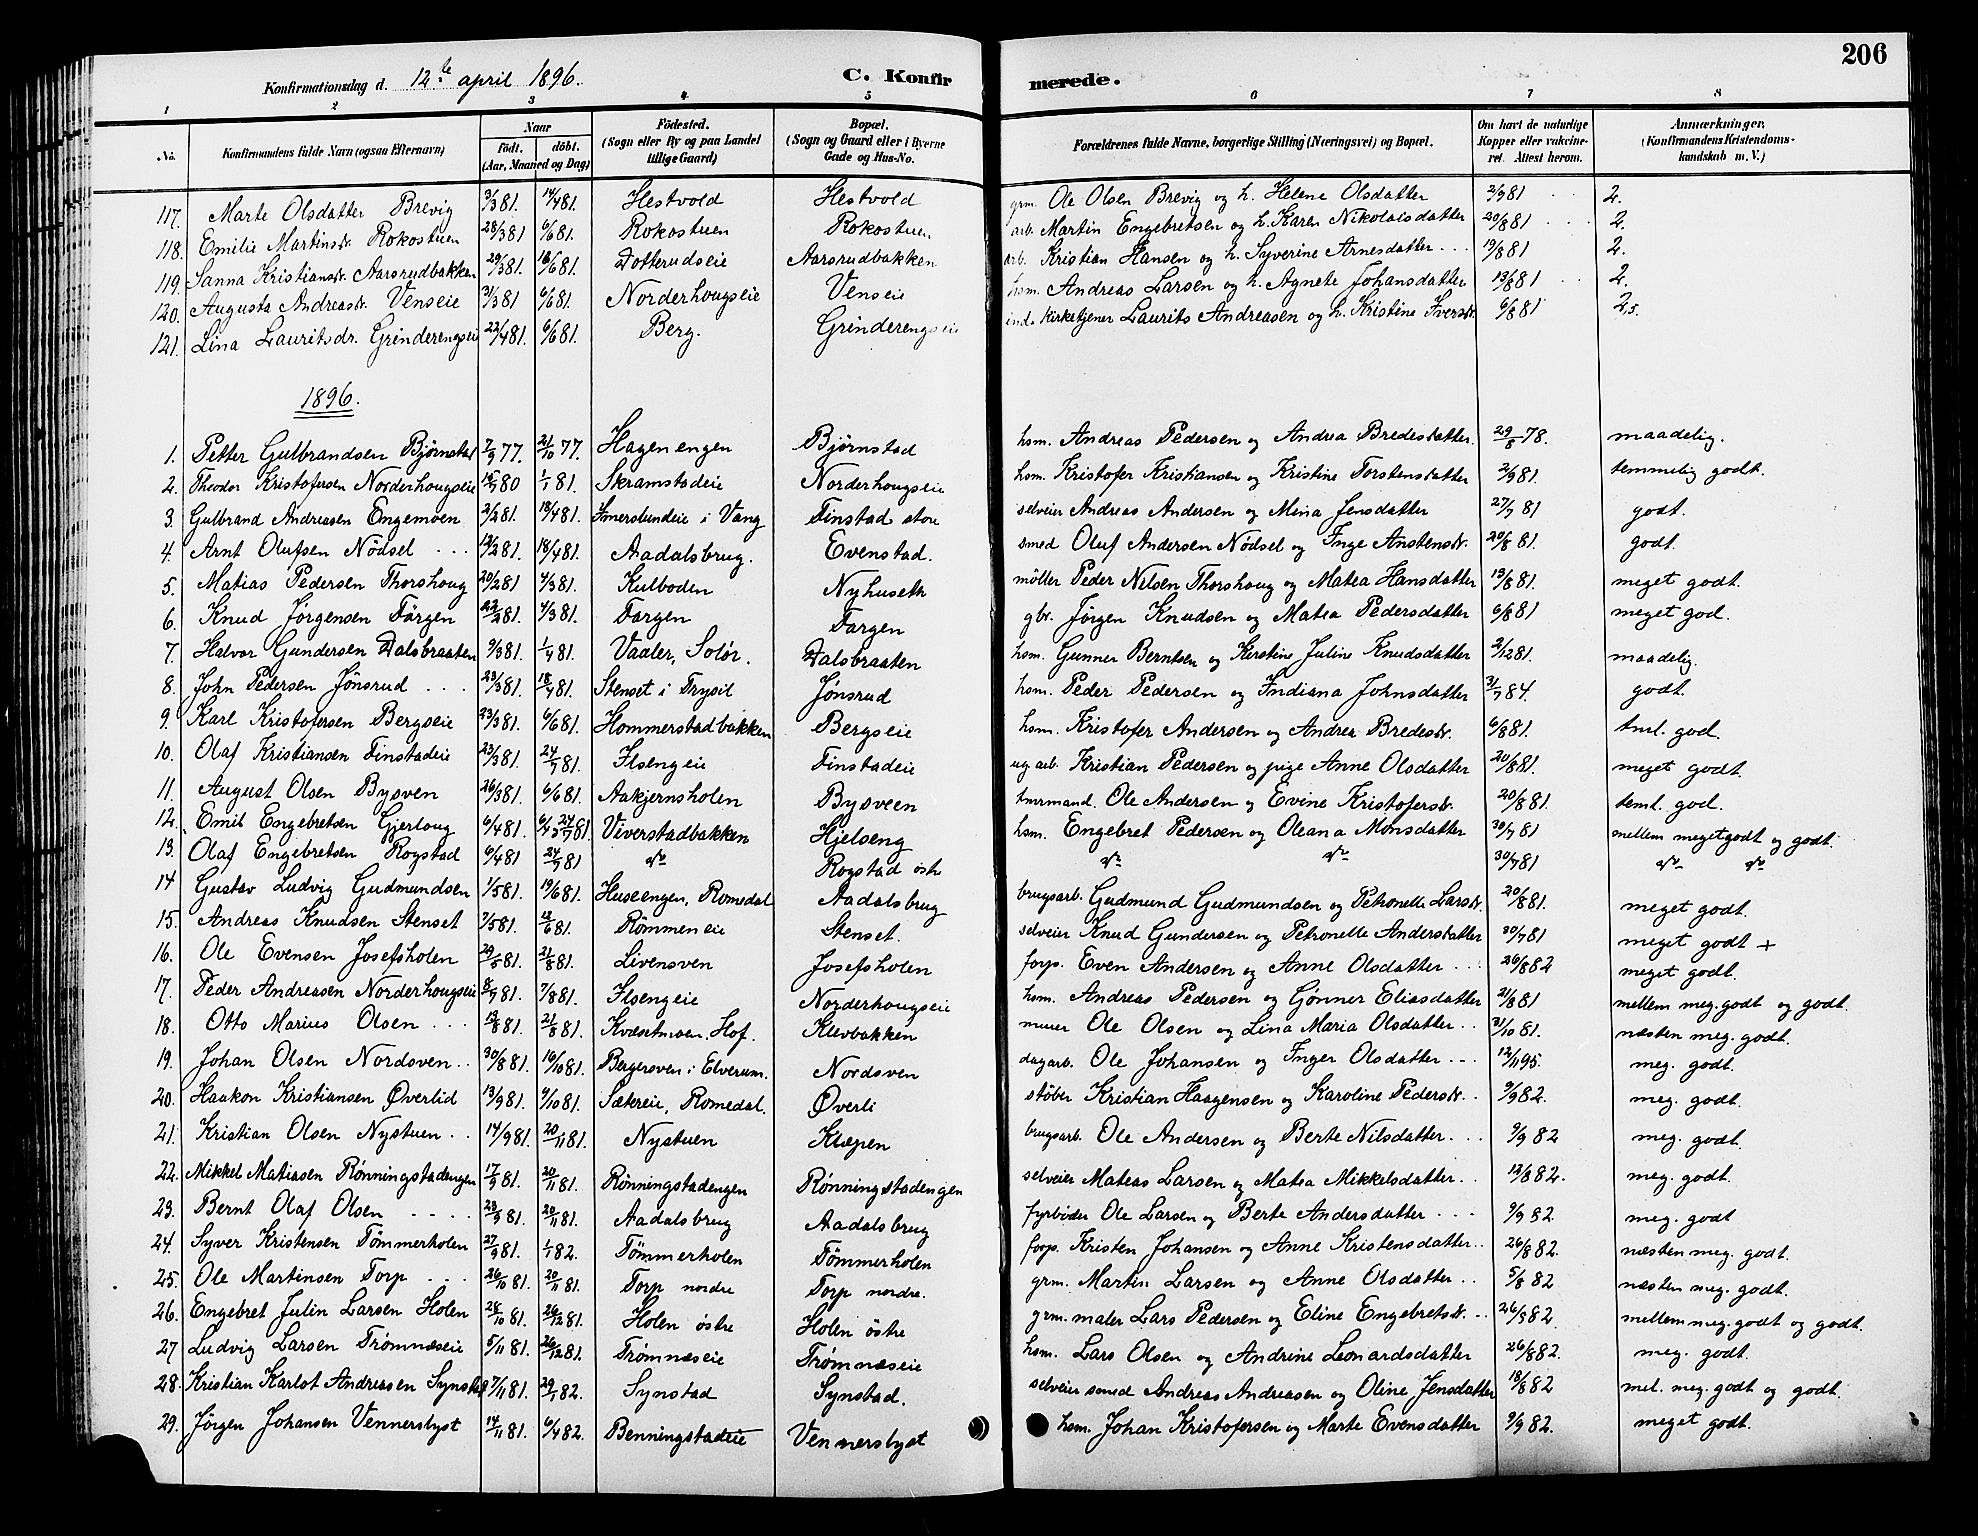 206
Konfirmationsdag d. 12te april 1896. C. Konfirmerede.
1 2 3 4 5 6 7 8
No. Konfirmandens fulde Navn (ogsaa Efternavn) Naar født. døbt. (Aar, Maaned og Dag) Fødested. (Sogn eller By og paa Landet tillige Gaard) Bopæl. (Sogn og Gaard eller i Byerne Gade og Hus-No. Forældrenes fulde Navne, borgerlige Stilling (Næringsvei) og Bopæl. Om havt de naturlige Kopper eller vakcineret. Attest herom. Anmærkninger. (Konfirmandens Kristendomskundskab m. V.)
117. Marte Olsdatter Brevig 3/381. 14/481. Hestvold Hestvold grm. Ole Olsen Brevig og h. Helene Olsdatter 2/981 2.
118. Emilie Martinsdr. Rokostuen 28/381 6/681. Rokostuen Rokostuen arb. Martin Engebretsen og h. Karen Nikolaisdatter 20/881 2.
119. Sanna Kristiansdr. Aarsrudbakken 29/381. 16/681. Dotterudseie Aarsrudbakken arb. Kristian Hansen og h. Syverine Arnesdatter 19/881 2.
120. Augusta Andreasdr. Venseie 31/381 6/681. Norderhougseie Venseie hsm. Andreas Larsen og h. Agnete Johansdatter 13/881 2.
121. Lina Lauritsdr. Grinderengseie 22/481. 6/681. Berg. Grinderengseie ind. kirketjener Laurits Andreasen og h. Kristine Iversdr. 6/881 2,5.
1896.
1. Petter Gulbrandsen Bjørnstad 7/9 77. 21/10 77. Hagenengen Bjørnstad hsm. Andreas Pedersen og Andrea Bredesdatter. 29/8 78. maadelig.
2. Theodor Kristofersen Norderhougseie 15/7 80 1/1 81. Skramstadeie Norderhougseie hsm. Kristofer Kristiansen og Kristine Torstensdatter 2/981. temmelig godt.
3. Gulbrand Andreasen Engemoen 2/281. 18/481. Smerslundeie i Vang Finstad store selveier Andreas Andersen og Mina Jensdatter 27/7 81 godt.
4. Arnt Olufsen Nødsel 12/281. 18/481. Aadalsbrug. Evenstad. smed Oluf Andersen Nødsel og Inge Anstensdr. 20/8 81. godt.
5. Matias Pedersen Thorshoug 20/281 4/381. Kulboden Nyhuseth møller Peder Nilsen Thorshoug og Matea Hansdatter 13/881. meget godt.
6. Knud Jørgensen Färgen 22/281. 4/381. Fargen Fargen gbr. Jørgen Knudsen og Matea Pedersdatter 6/881 meget god.
7. Halvor Gundersen Dalsbraaten 9/381. 1/4 81. Vaaler, Solør. Dalsbraaten hsm. Gunner Berntsen og Kerstine Juline Knudsdatter 2/1281. maadelig.
8. John Pedersen Jønsrud 23/381. 18/4 81. Stenset i Trysil Jønsrud hsm. Peder Pedersen og Indiana Johnsdatter 3/7 84. godt.
9. Karl Kristofersen Bergseie 23/381. 6/681. Hommerstadbakken Bergseie hsm. Kristofer Andersen og Andrea Bredesdr. 6/881. tml. god.
10. Olaf Kristiansen Finstadeie 23/381. 24/7 81. Ilsengeie Finstadeie ug arb. Kristian Pedersen og pige Anne Olsdatter 20/881. meget godt.
11. August Olsen Bysven 26/381. 6/681. Aakjernsholen Bysveen tmrmand. Ole Andersen og Evine Kristofersdr. 20/881. teml. god.
12. Emil Engebretsen Gjerloug 6/481. 6/4 24/7 81. Viverstadbakken Hjelseng hsm. Engebret Pedersen og Oleana Monsdatter 30/781 mellem meget godt og godt.
13. Olaf Engebretsen Rogstad 6/481 24/7 81 do Rogstad østre do do 30/781 do do
14 Gustav Ludvig Gudmundsen 1/581. 19/681. Huseengen, Romedal Aadalsbrug brugsarb. Gudmund Gudmundsen og Petronelle Larsdr. 20/881. meget godt.
15. Andreas Knudsen Stenset 7/581. 12/681. Rømmeneie Stenset. selveier Knud Gundersen og Petronelle Andersdatter 30/781 meget godt +
16. Ole Evensen Josefsholen 29/581. 21/881. Livensven Josefsholen forp. Even Andersen og Anne Olsdatter 26/882 meget godt.
17. Peder Andreasen Norderhougseie 8/781. 7/881. Ilsengeie Norderhougseie hsm. Andreas Pedersen og Gønner Eliasdatter 21/881 mellem meg. godt og godt.
18. Otto Marius Olsen 12/881. 21/881. Kværtmoen. Hof. Klevbakken murer Ole Olsen og Lina Maria Olsdatter 31/10 81. næsten meg. godt.
19. Johan Olsen Nordsven 30/881. 16/1081. Bergersven i Elverum. Nordsven dagarb. Ole Johansen og Inger Olsdatter 12/1195. meg. godt.
20. Haakon Kristiansen Øverlid 13/981. 9/1081. Sætereie, Romedal. Øverli støber Kristian Haagensen og Karoline Pedersdr. 9/982. meg. godt.
21. Kristian Olsen Nystuen 14/981. 20/1181. Nystuen Klæpen brugsarb. Ole Andersen og Berte Nilsdatter 9/9 82 meg. godt.
22. Mikkel Matiasen Rønningstadengen 17/981. 20/1181. Rønningstadengen Rønningstadengen selveier Mateas Larsen og Matea Mikkelsdatter 12/882. meg. godt.
23. Bernt Olaf Olsen 23/981. 20/1181. Aadalsbrug Aadalsbrug fyrbøder Ole Larsen og Berte Andersdatter 9/982. meg. godt
24. Syver Kristensen Tømmerholen 27/981. 1/1 82. Tømmerholen Tømmerholen forp. Kristen Johansen og Anne Kristensdatter 26/882. næsten meg. godt.
25. Ole Martinsen Torp 26/1081. 20/1181. Torp nordre Torp nordre. grm. Martin Larsen og Anne Olsdatter 5/8 82 næsten meg. godt.
26. Engebret Julin Larsen Holen 28/1081. 26/1281. Holen østre Holen østre grm. maler Lars Pedersen og Eline Engebretsdr. 26/982. mellem meg. godt og godt.
27 Ludvig Larsen Trømnæseie 5/1181. 26/1281. Trømnæseie Trømnæseie hsm. Lars Olsen og Andrine Leonardsdatter 26/882. meg. godt.
28. Kristian Karlot Andreasen Synstad 7/1181. 29/1 82. Synstad Synstad. selveier smed Andreas Andreasen og Oline Jensdatter 18/882 mel. meg. godt og godt.
29. Jørgen Johansen Vennerslyst 14/1181. 6/482. Benningstadeie Vennerslyst hsm. Johan Kristofersen og Marte Evensdatter 9/982. meget godt.